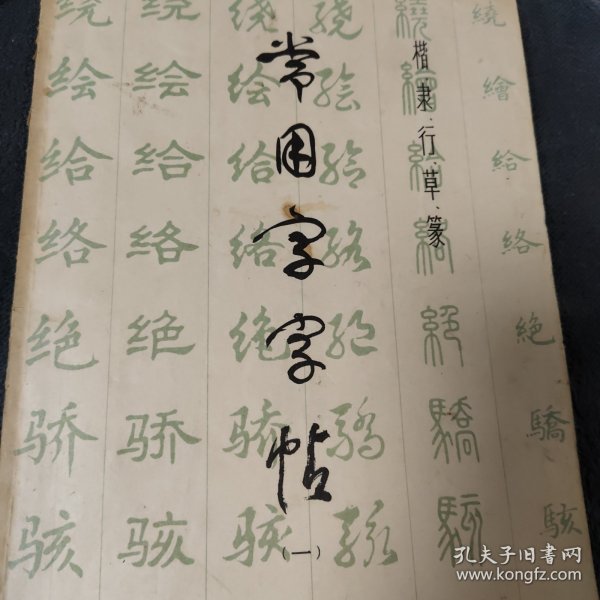 常用字字帖
(一)
楷·隶·行·草·篆
绕 绘 给 络 绝 骄 骇
绕 绘 给 络 绝 骄 骇
绕 绘 给 络 绝 骄 骇
绕 绘 给 络 绝 骄 骇
繞 繪 給 絡 絕 驕 駭
繞 繪 給 絡 絶 驕 駭
孔夫子旧书网
www.kongfz.com